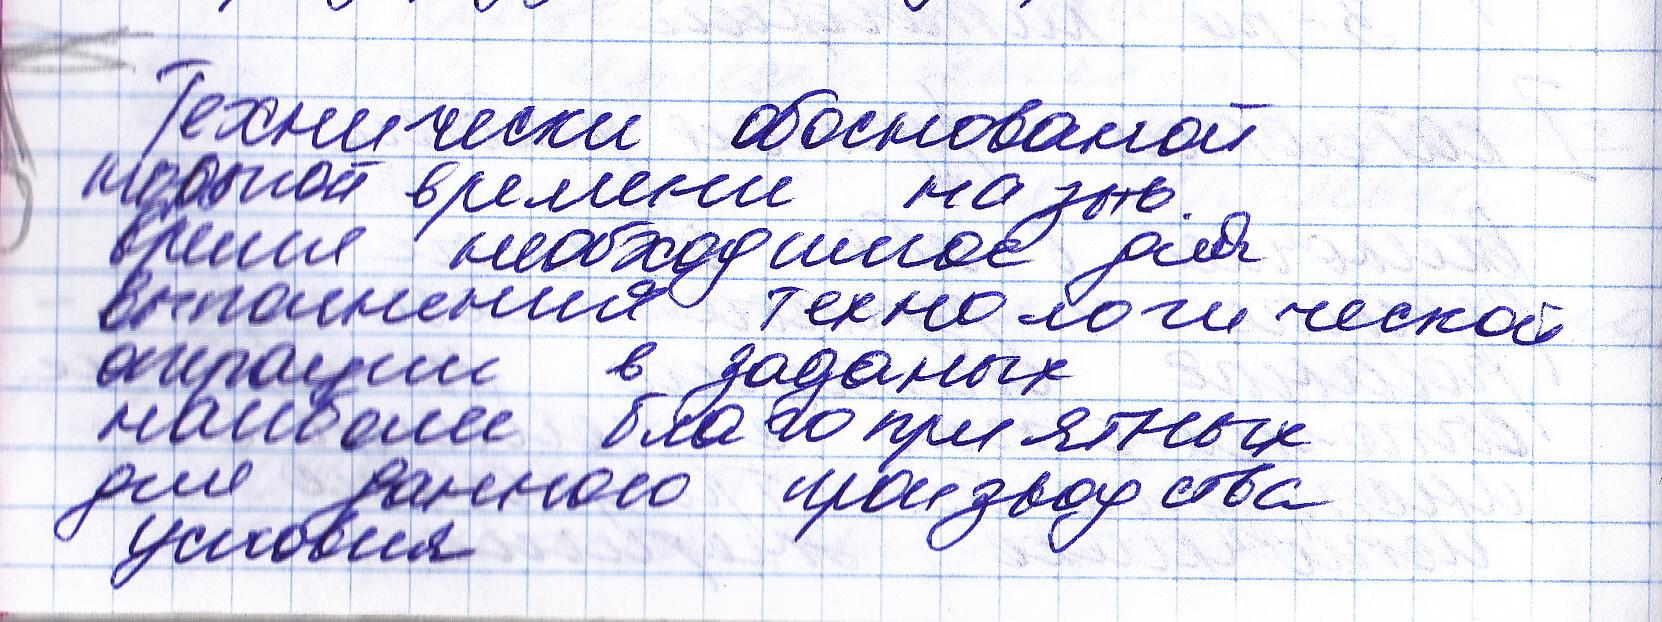 Технически обоснованой
нормой времени назыв.
время необходимое для
выполнения технологической
операции в заданых
наиболее благоприятных
для данного производства
условия